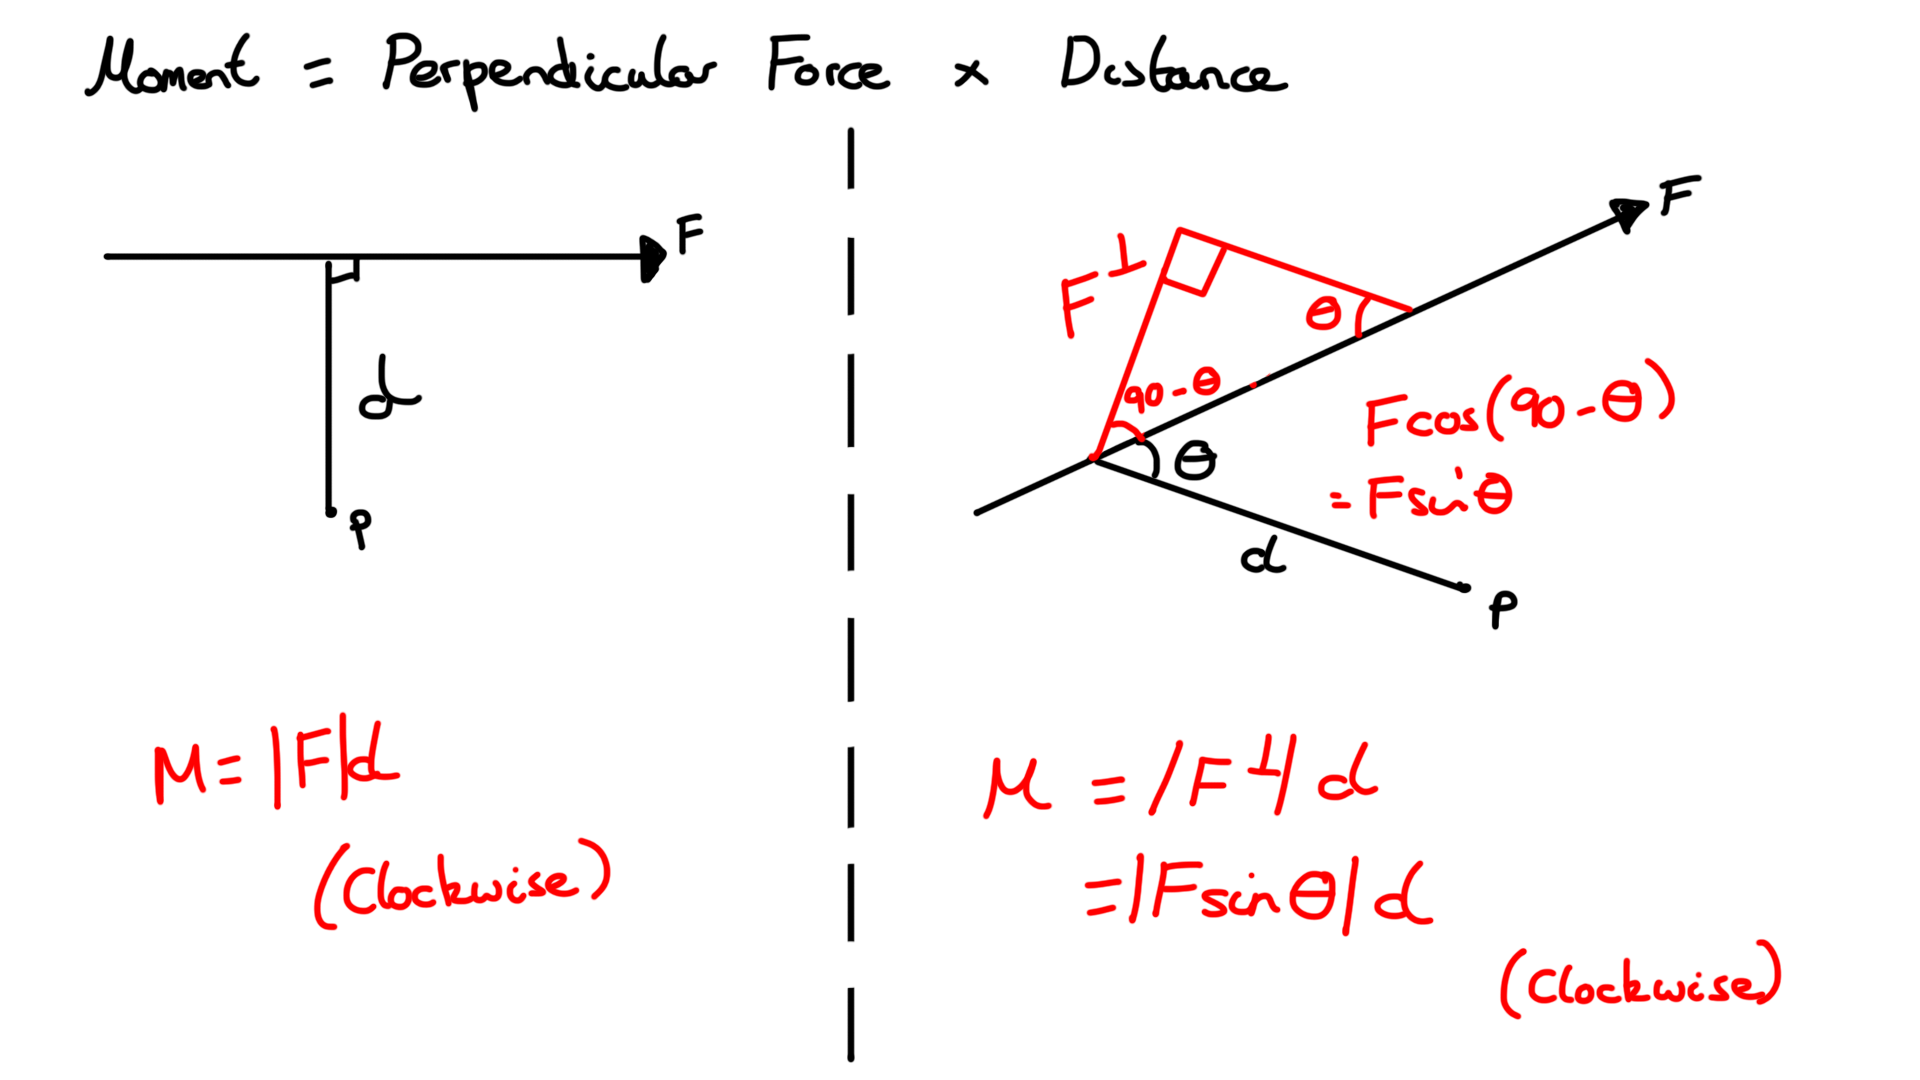 Moment = Perpendicular Force × Distance
F
d
P
M = |F|d
(Clockwise)
F
F⊥
θ
90-θ
θ
Fcos(90-θ)
= Fsinθ
d
P
M = |F⊥|d
= |Fsinθ|d
(Clockwise)